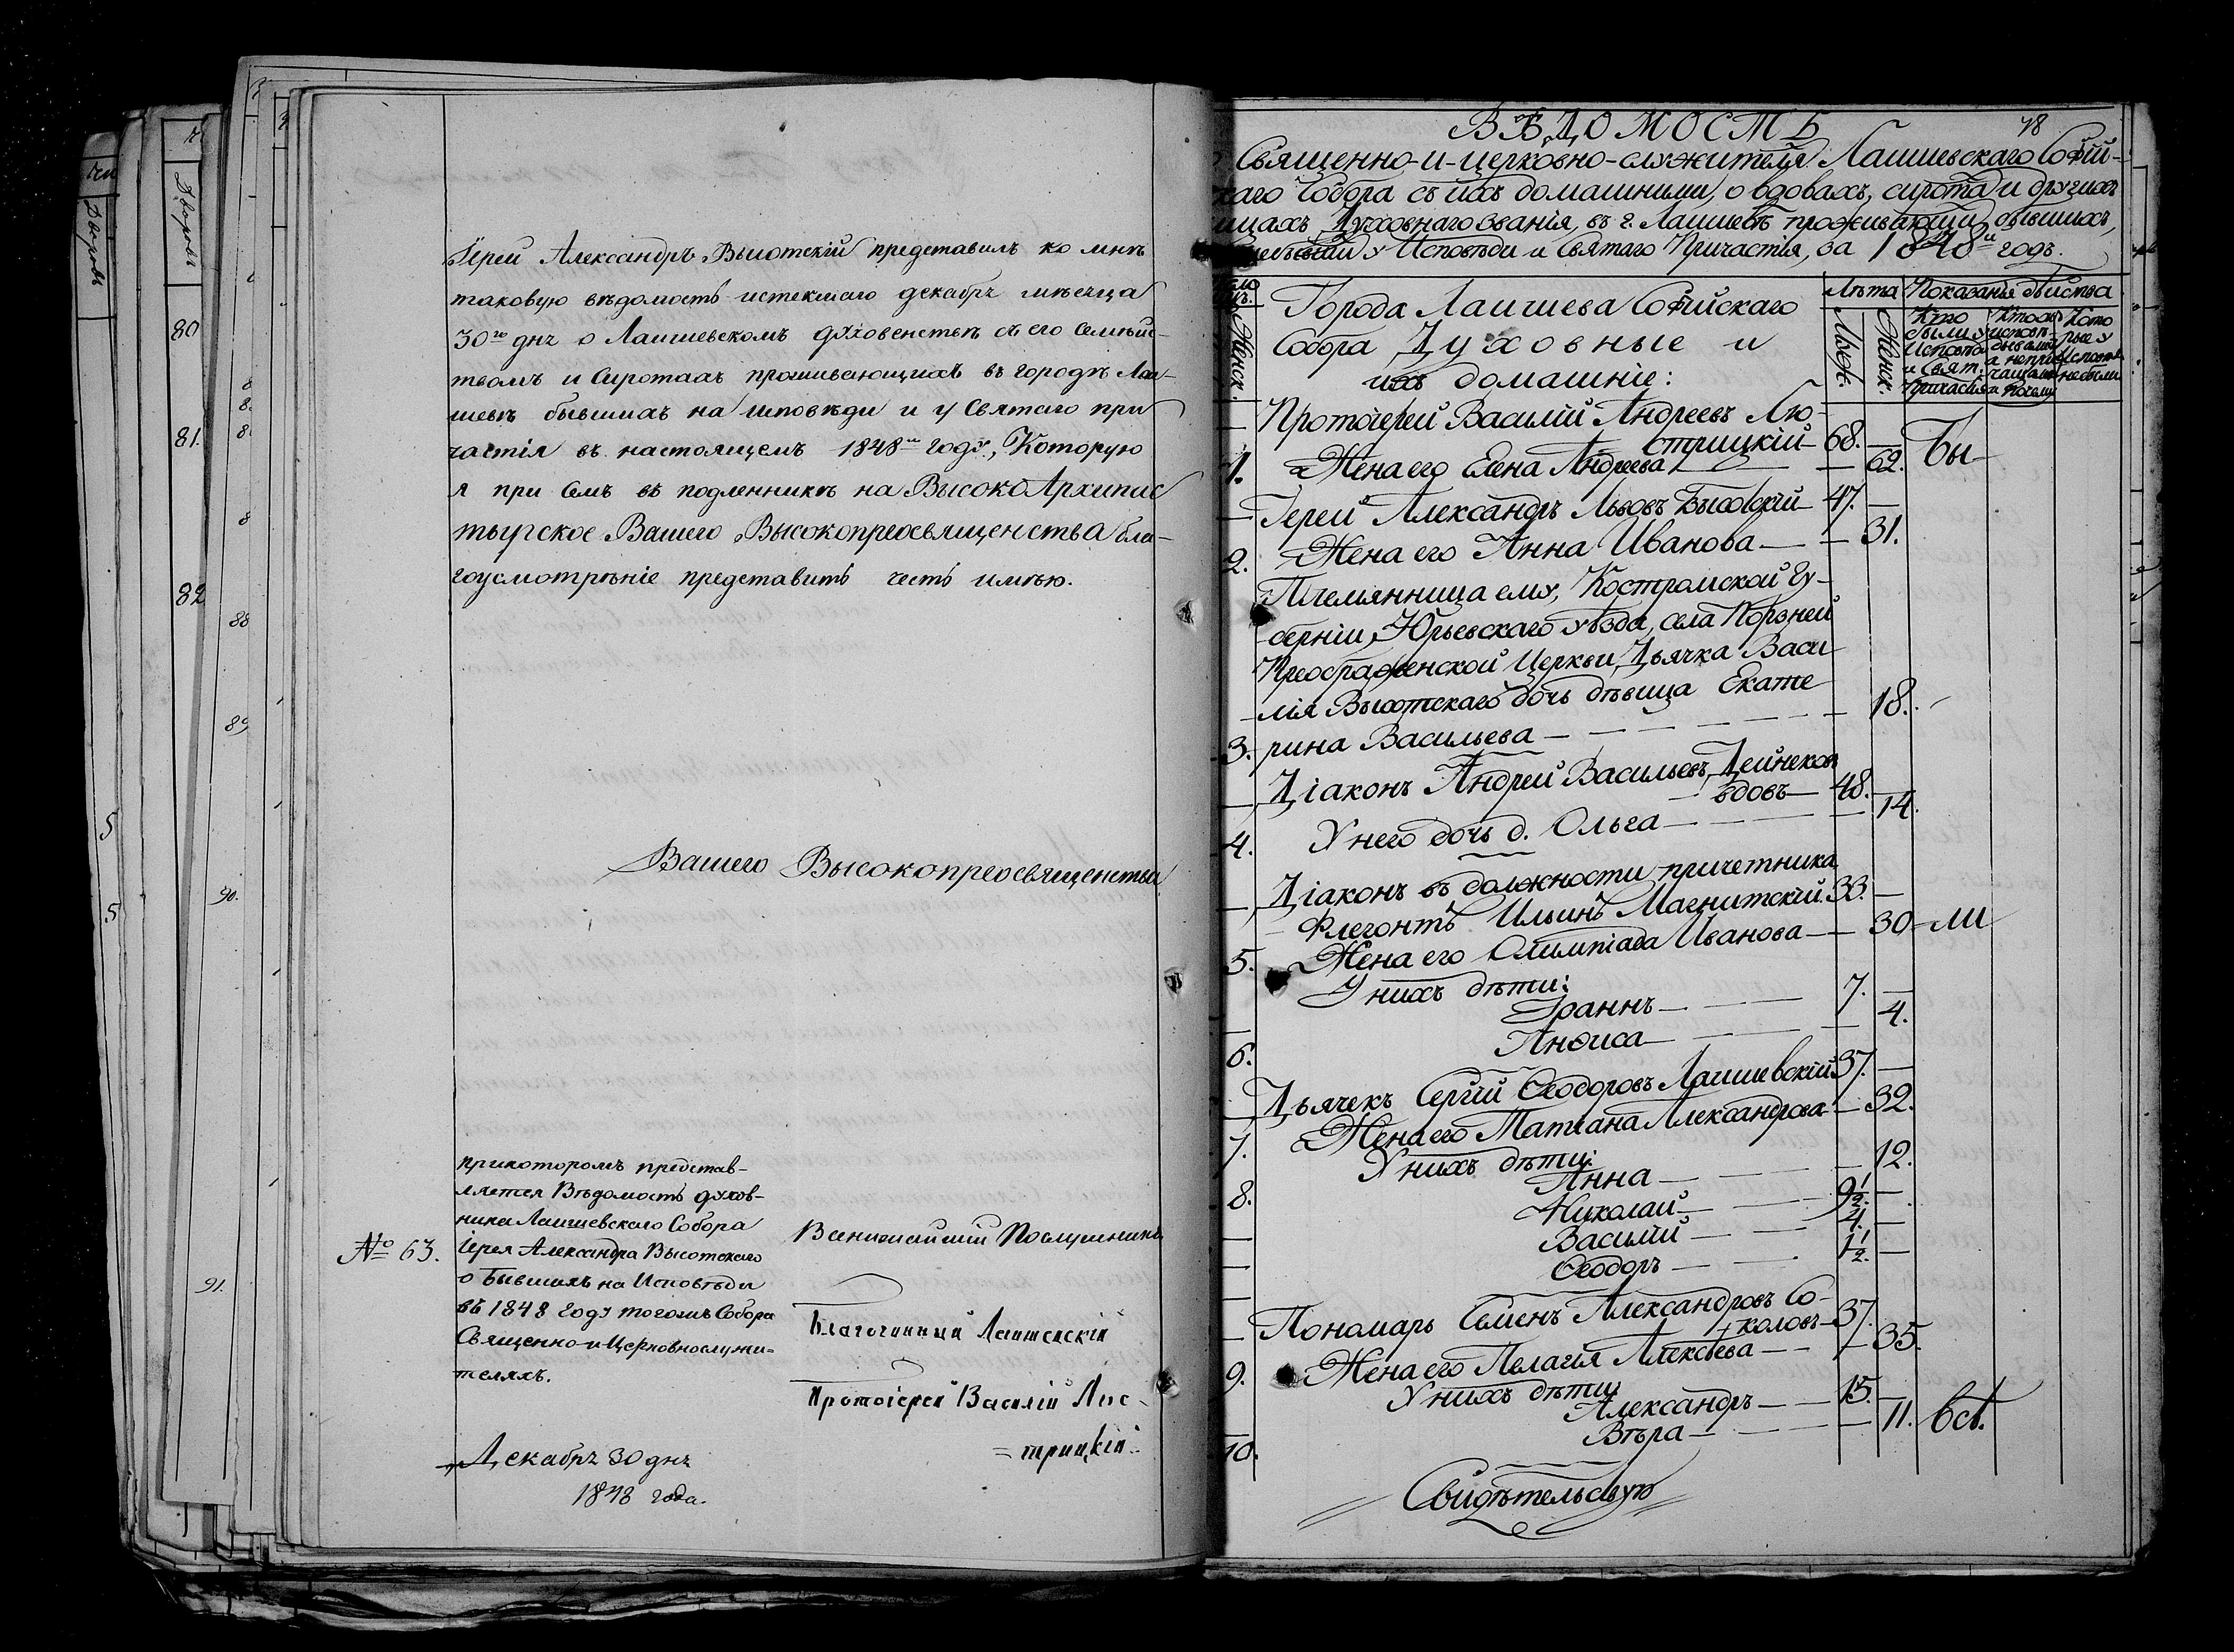 Іерей Александръ Высотскій представилъ ко мнѣ
таковую вѣдомость истекшаго декабря мѣсяца
30го дня о Лаишевскомъ духовенствѣ съ его семѣйс-
твомъ и Сиротахъ проживающихъ въ городѣ Лаи-
шевѣ бывшихъ на исповѣди и у Святаго при
частія въ настоящемъ 1848м году, Которую
я при семъ въ подленникѣ на ВысокоАрхипас
тырское Вашего Высокопреосвященства бла-
гоусмотрѣніе представить честь имѣю.
Вашего Высокопреосвященства
прикоторомъ представ-
ляется Вѣдомость духов-
ника Лаишевскаго Собора
Іерея Александра Высотскаго
о бывшихъ на Исповѣди
въ 1848 году тогожъ Собора
Священно-и-Церковнослужи-
теляхъ.
№ 63.
Декабря 30 дня
1848 года.
Послушникъ
Благочинный Лаишевскій
Протоіерей Василій Люс-
=трицкій
80
81.
82
88
89
90.
91.
5
5
ВѢДОМОСТЬ
78
Священно-и-церковно-служителя Лаишевскаго Софій-
скаго Собора съ ихъ домашними, о вдовахъ, сирота и другихъ
лицахъ Духовнаго званія, въ г. Лаишевѣ проживающи, бывшихъ,
у Исповѣди и Святаго Причастія, за 1848й годъ.
Женск.
Города Лаишева Софійскаго
Собора Духовные и
ихъ домашніе:
Лѣта
Муж.
Женск.
Показанія дѣйства
Кто
были у
Исповѣ.
и Свят.
Причастія
Кто
исповѣ-
дывались
а непри
чащали
и почему
Кото
рые у
Исповѣди
не были
Протоіерей Василій Андреевъ Лю-
стрицкій 68.
1. Жена его Елена Андреева 62. Бы
Іерей Александръ Львовъ Высотскій 47.
2. Жена его Анна Иванова 31.
Племянница ему, Костромской Гу-
берніи, Юрьевскаго уѣзда, села Порзней
Преображенской Церкви, Дьячка Васи
лія Высотскаго дочь дѣвица Екате
3. рина Васильева 18.
Діаконъ Андрей Васильевъ Дейнековъ
вдовъ 48.
4. У него дочь д. Ольга 14.
Діаконъ въ должности причетника
Флегонтъ Ильинъ Магнитскій 33.
5. Жена его Олимпіада Иванова 30 -ли
У нихъ дѣти:
Іоаннъ 7.
6. Анфиса 4.
Дьячекъ Сергій Ѳеодоровъ Лаишевскій 37.
7. Жена его Татіана Александрова 32.
У нихъ дѣти:
8. Анна 12.
Николай 9½
Василій 4.
Ѳеодоръ 1½.
Пономарь Семенъ Александровъ Со-
коловъ 37.
9. Жена его Пелагія Алексѣева 35.
У нихъ дѣти:
Александръ 15.
10. Вѣра 11. всѣ.
Свидѣтельствую